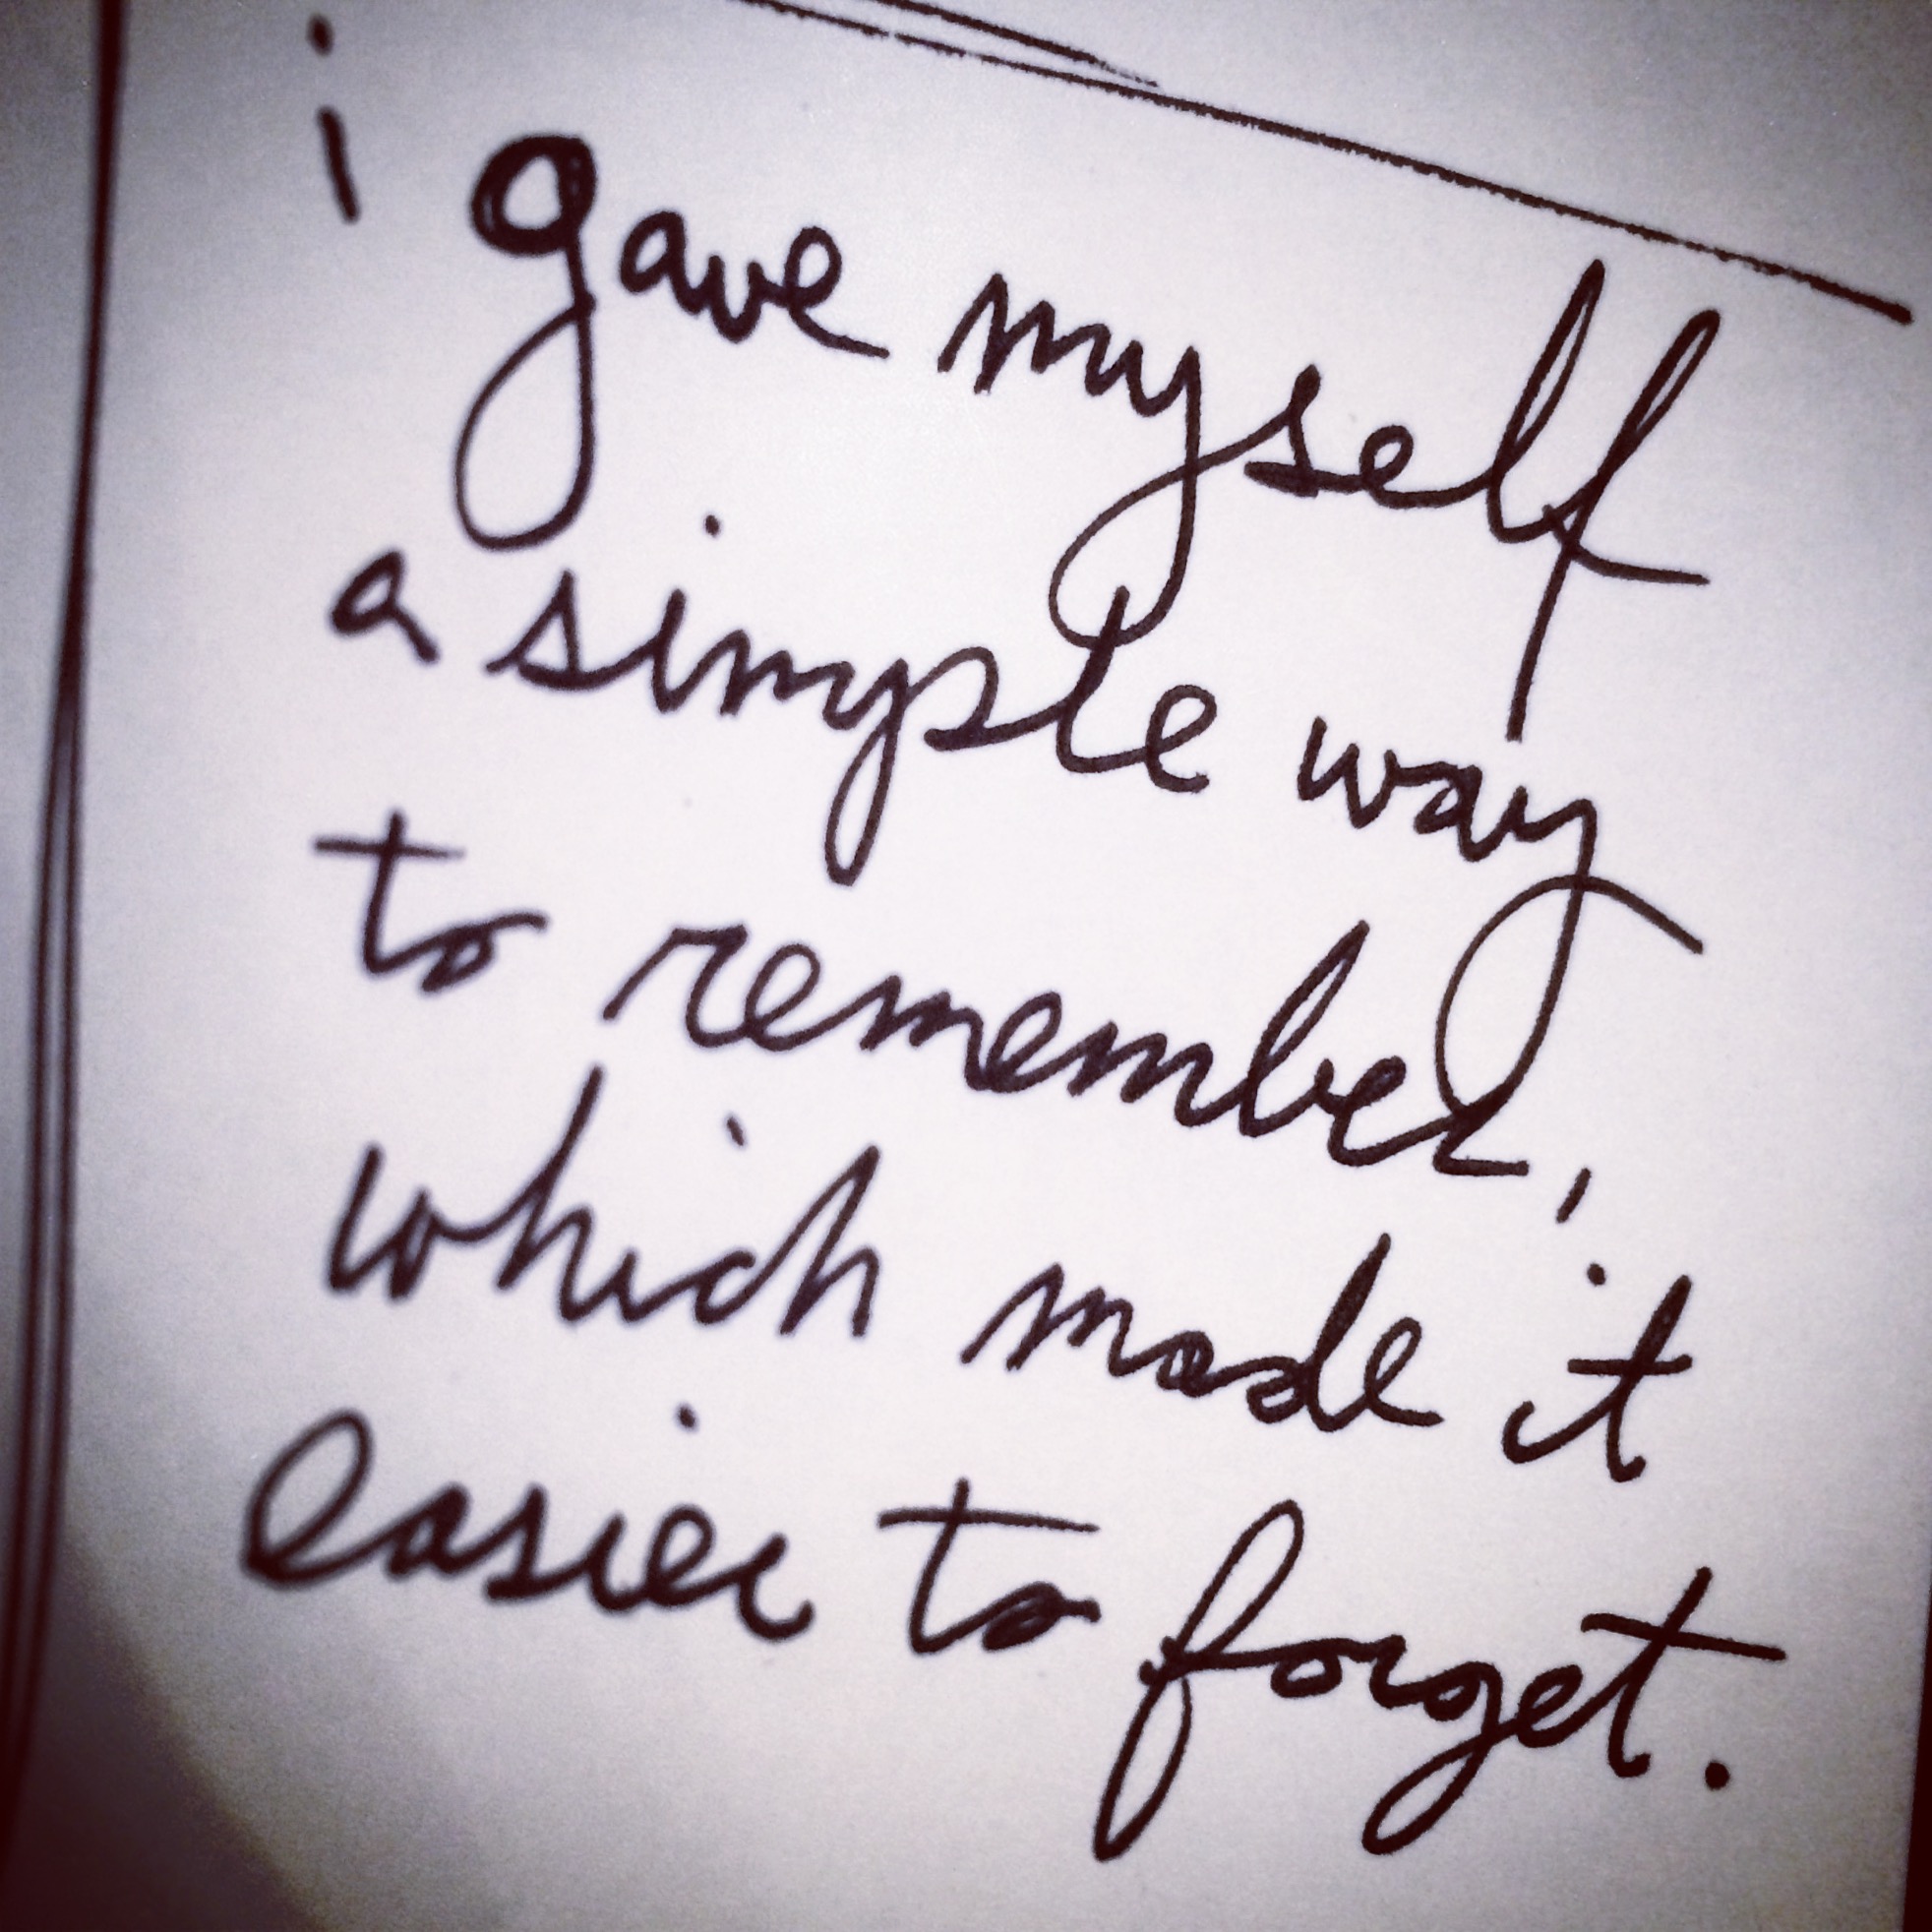 i gave myself
a simple way
to remember,
which made it
easier to forget.